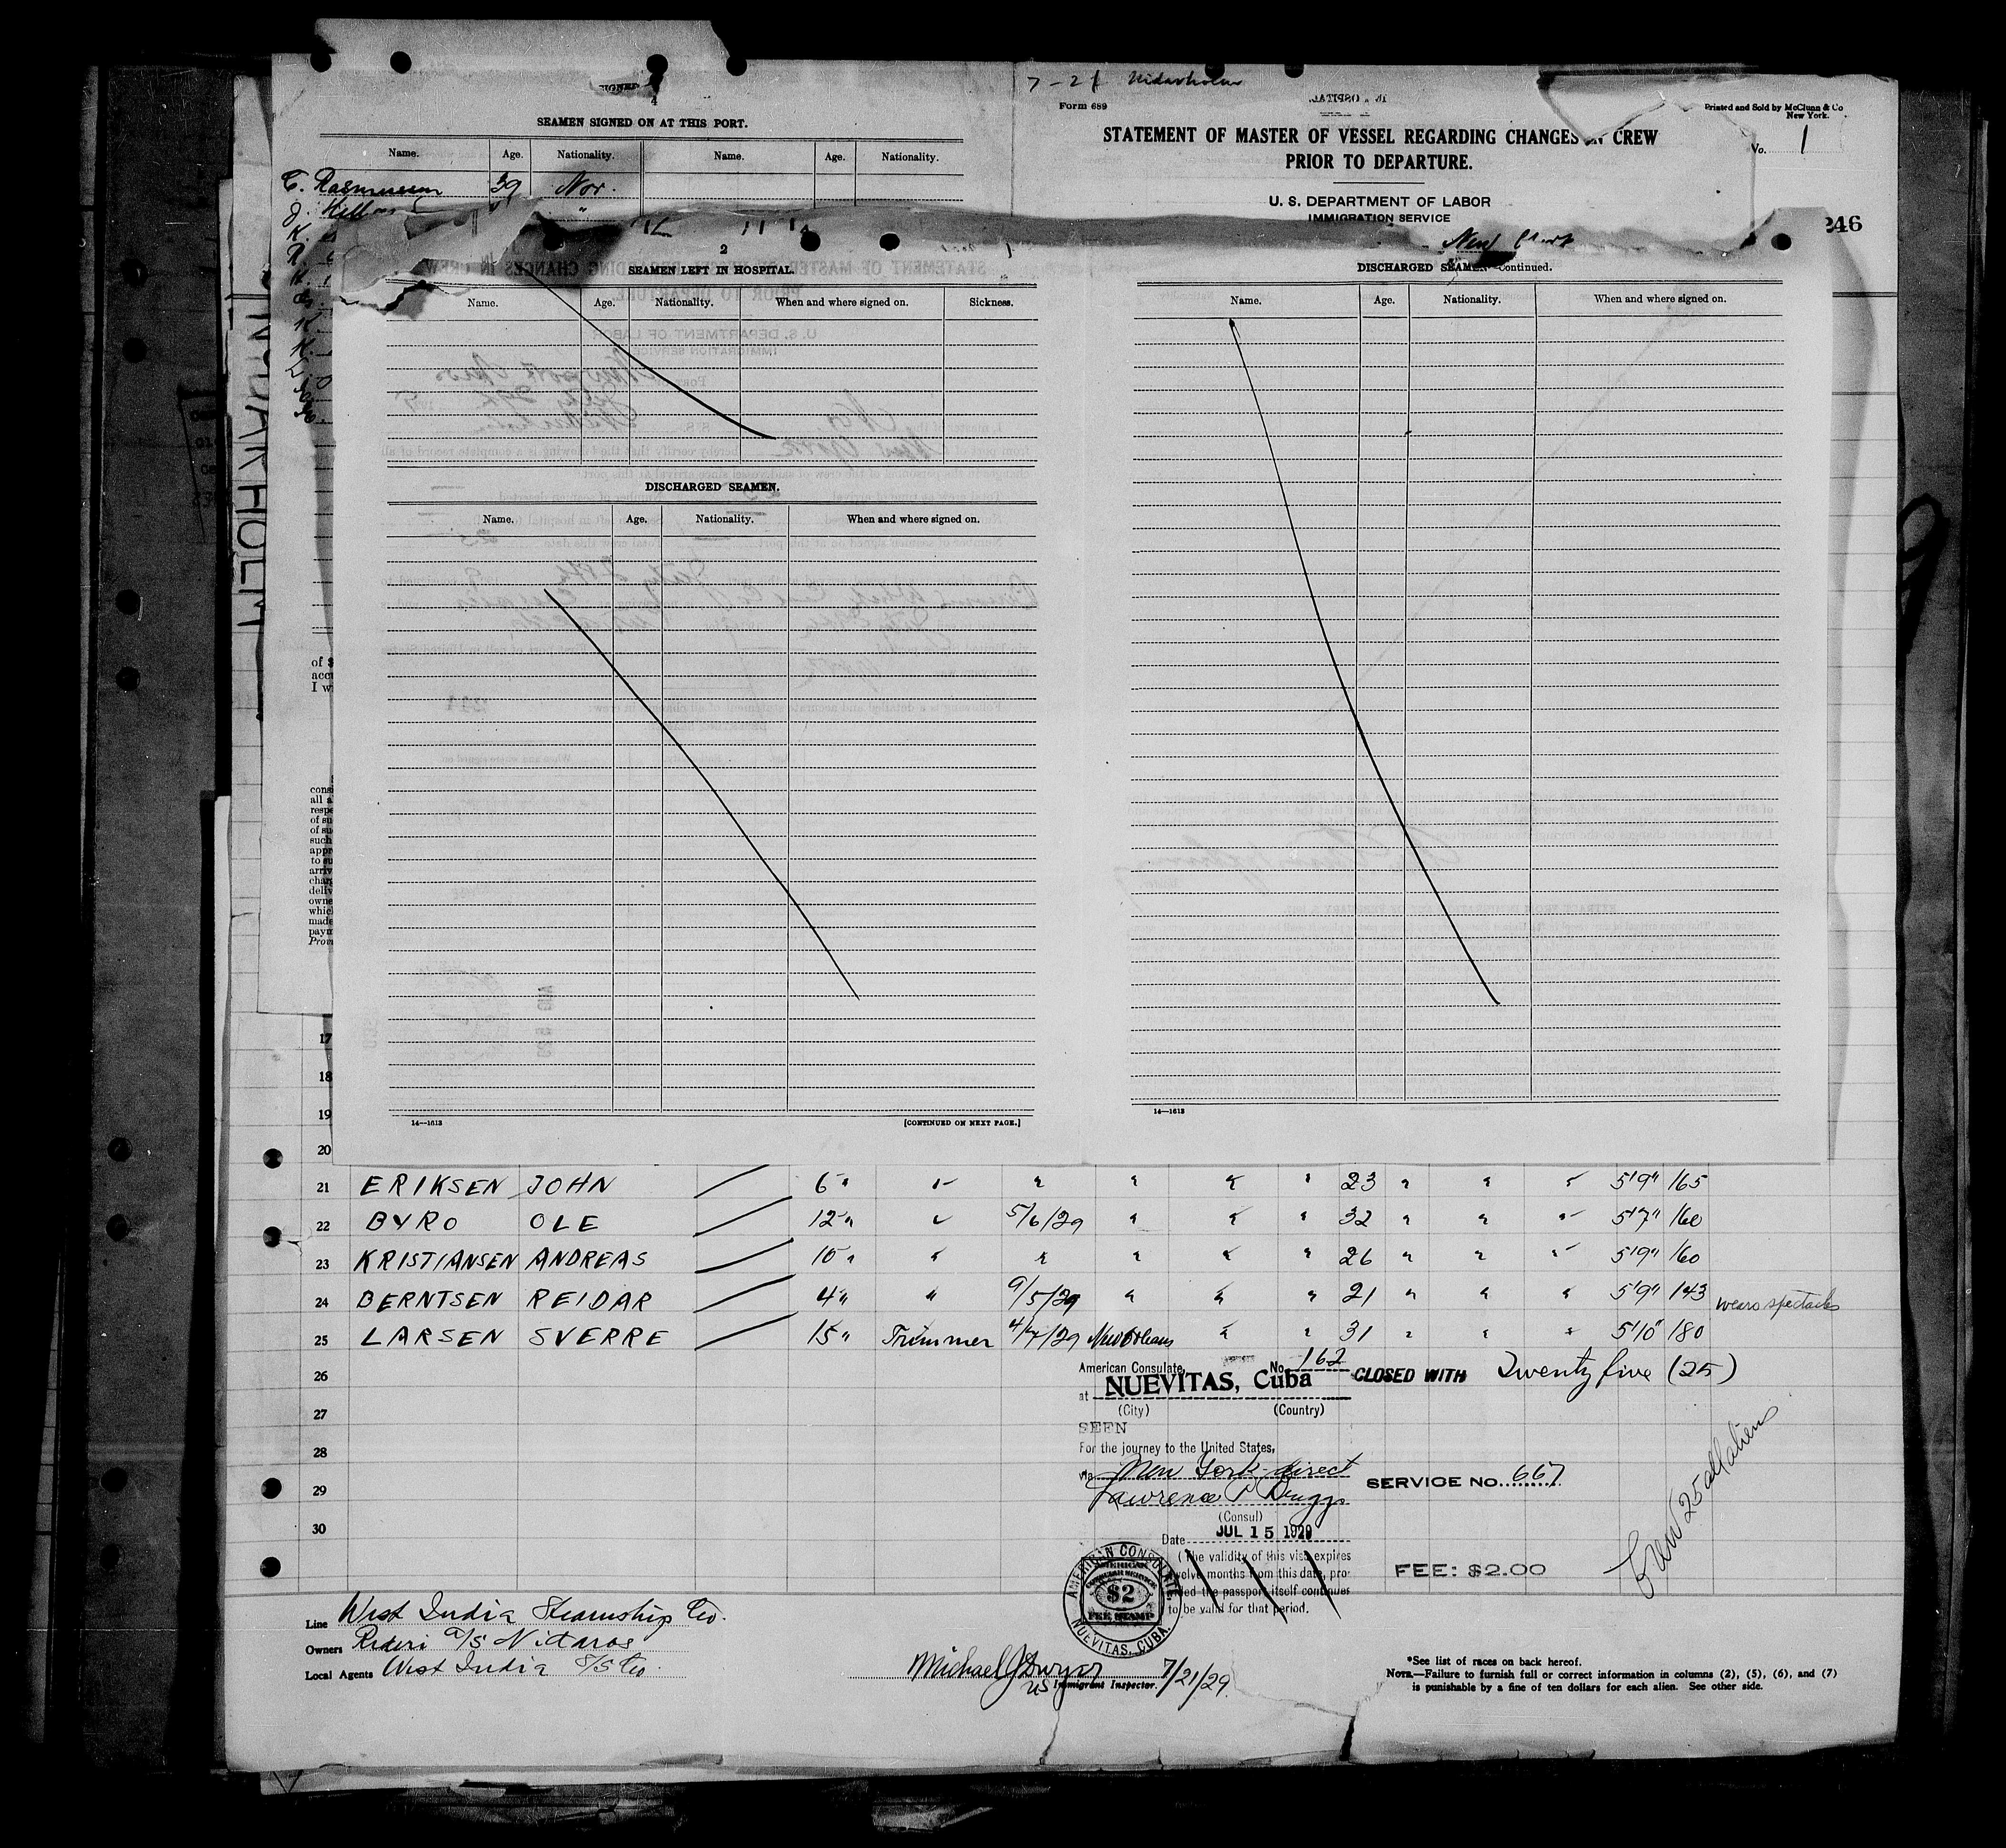 7-21 Nidarholm
Form 689
Printed and Sold by McClunn & Co
New York.
SEAMEN SIGNED ON AT THIS PORT.
STATEMENT OF MASTER OF VESSEL REGARDING CHANGES IN CREW
PRIOR TO DEPARTURE.
Vo. 1
Name. Age. Nationality. Name. Age. Nationality.
C. Rasmussen 39 Nor.
U. S. DEPARTMENT OF LABOR
IMMIGRATION SERVICE
246
New York
2
SEAMEN LEFT IN HOSPITAL.
Name. Age. Nationality. When and where signed on. Sickness.
DISCHARGED SEAMEN.
Name. Age. Nationality. When and where signed on.
14—1613
[CONTINUED ON NEXT PAGE.]
DISCHARGED SEAMEN—Continued.
Name. Age. Nationality. When and where signed on.
14—1613
NIDARHOLM
of $
acc
I w
cons
all a
respe
of su
of su
such
appr
to su
arriv
charg
deliv
owne
which
made
paym
Prov
17
18
19
20
21 ERIKSEN JOHN 6 " " " " " " 23 " " " 5'9" 165
22 BYRO OLE 12 " " 5/6/29 " " " 32 " " " 5'7" 160
23 KRISTIANSEN ANDREAS 10 " " " " " " 26 " " " 5'9" 160
24 BERNTSEN REIDAR 4 " " 9/5/29 " " " 21 " " " 5'9" 143 wears spectacles
25 LARSEN SVERRE 15 " Trimmer 4/4/29 New Orleans " " 31 " " " 5'10" 180
26
27
28
29
30
American Consulate, No. 162
at NUEVITAS, Cuba
(City) (Country)
SEEN
For the journey to the United States,
via New York direct
Lawrence P Briggs
(Consul)
Date JUL 15 1929
(The validity of this visa expires
twelve months from this date, pro-
vided the passport itself continues
to be valid for that period.
CLOSED WITH Twenty five (25)
SERVICE NO. 667
FEE: $2.00
Crew 25 all aliens
AMERICAN CONSULATE,
NUEVITAS, CUBA.
AMERICAN
CONSULAR SERVICE
$2
FEE STAMP
Line West India Steamship Co.
Owners Rederi A/S Nidaros
Local Agents West India S/S Co.
Michael J Dwyer 7/21/29
US Immigrant Inspector.
*See list of races on back hereof.
NOTE.—Failure to furnish full or correct information in columns (2), (5), (6), and (7)
is punishable by a fine of ten dollars for each alien. See other side.